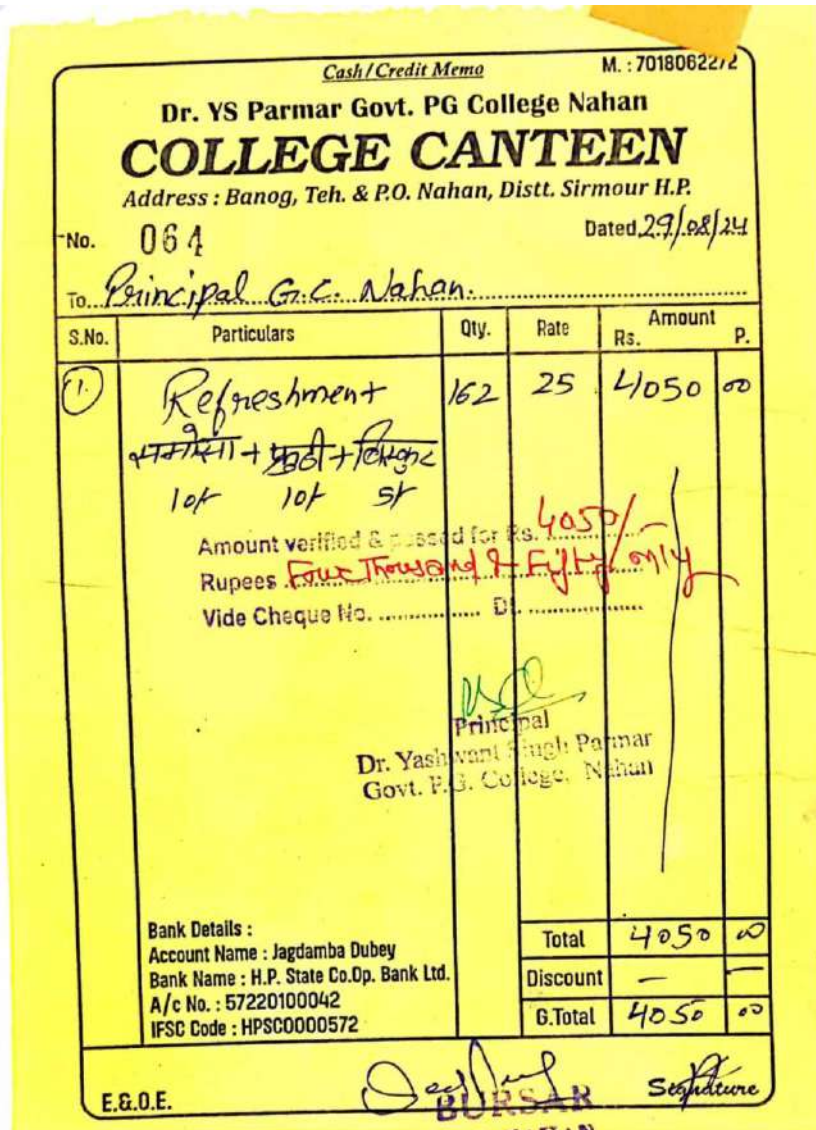 Cash/Credit Memo M. : 7018062272
Dr. YS Parmar Govt. PG College Nahan
COLLEGE CANTEEN
Address : Banog, Teh. & P.O. Nahan, Distt. Sirmour H.P.
No. 064 Dated 29/08/24
To Principal G.C. Nahan.
S.No. Particulars Qty. Rate Amount Rs. P.
1. Refreshment 162 25 4050 00
समोसा + + बिस्कुट
10/- 10/- 5/-
Amount verified & passed for Rs. 4050/-
Rupees Four Thousand & Fifty only
Vide Cheque No. ............ Dt. ............
Principal
Dr. Yashwant Singh Parmar
Govt. P.G. College, Nahan
Bank Details :
Account Name : Jagdamba Dubey
Bank Name : H.P. State Co.Op. Bank Ltd.
A/c No. : 57220100042
IFSC Code : HPSC0000572
Total 4050 00
Discount — —
G.Total 4050 00
E.&.O.E. Signature
BURSAR